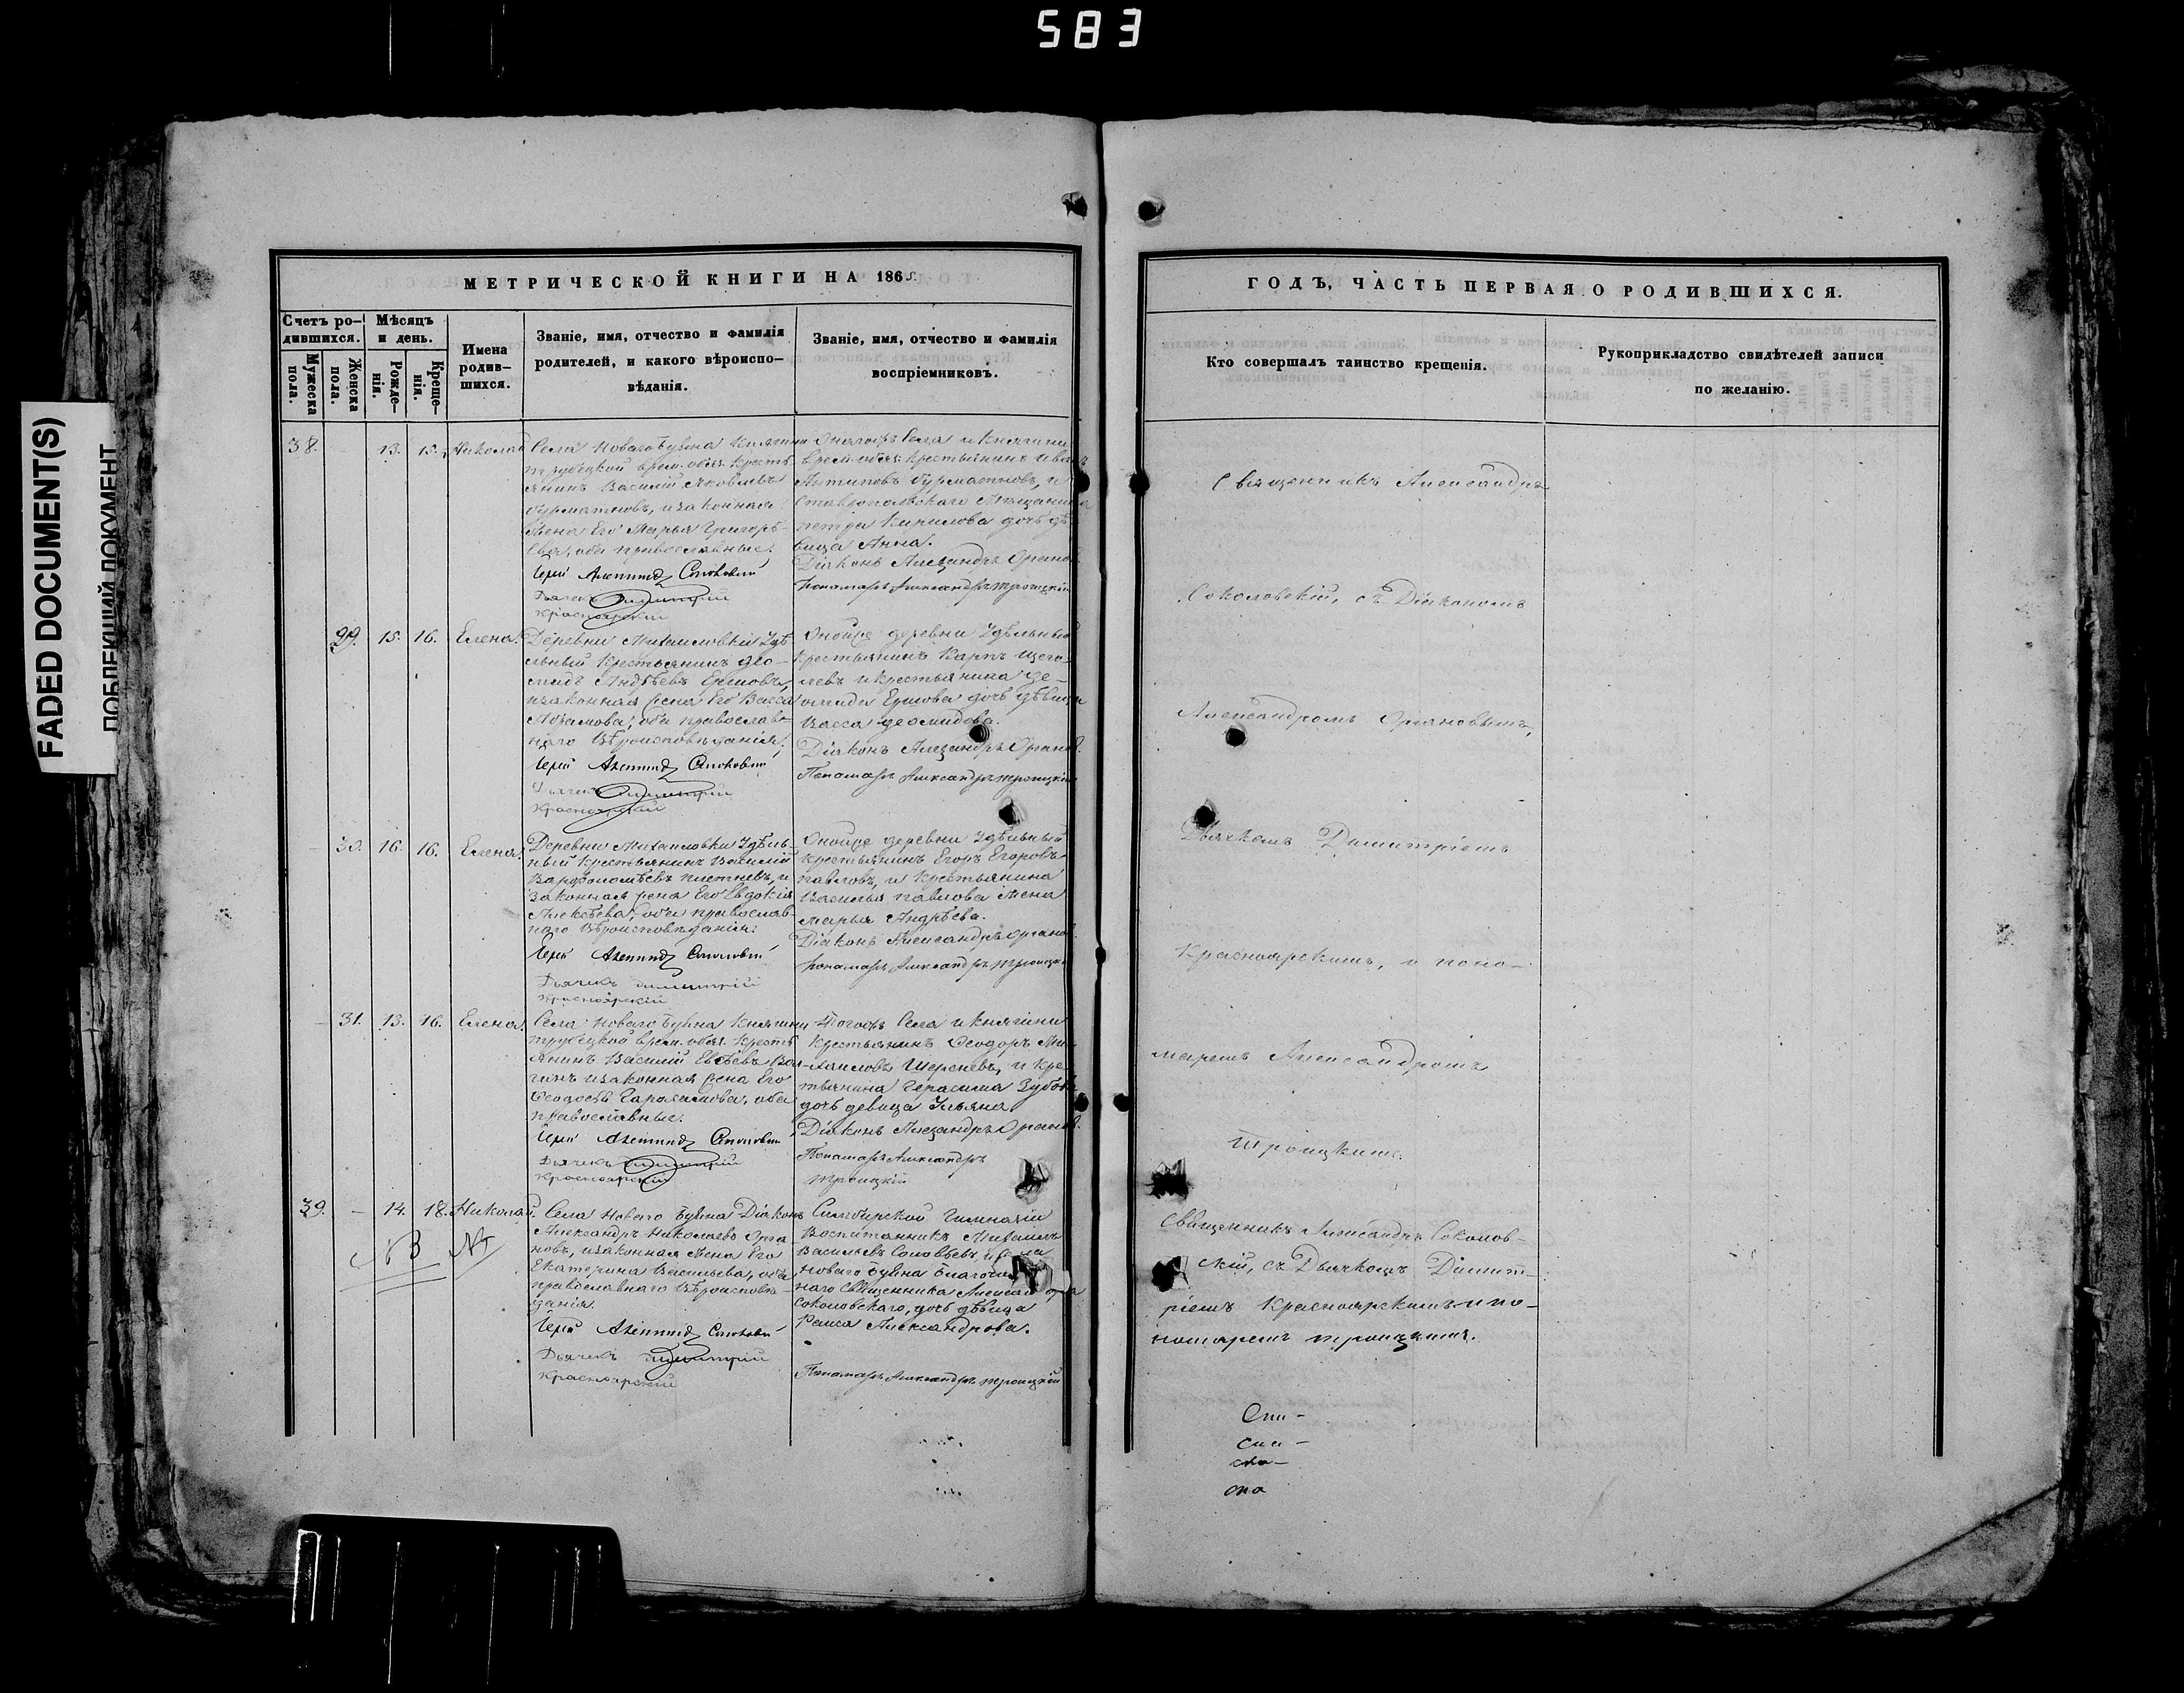 583
FADED DOCUMENT(S)
ПОБЛЕКШИЙ ДОКУМЕНТ
МЕТРИЧЕСКОЙ КНИГИ НА 1865
Счетъ ро-
дившихся.
Мужеска
пола.
Женска
пола.
Мѣсяцъ
и день.
Рожде-
нія.
Креще-
нія.
Имена
родив-
шихся.
Званіе, имя, отчество и фамилія
родителей, и какого вѣроиспо-
вѣданія.
Званіе, имя, отчество и фамилія
воспріемниковъ.
38.
13.
15.
Николай
Села Новаго Буяна Княгини
Трубецкой врем. обяз. кресть
янинъ Василій Яковлевъ
и законная
жена Его Марья Григорь-
ева, оба православные.
Дьячекъ Димитрій
Красноярскій
Онагожъ Села и Княгини
врем. обяз. крестьянинъ Иванъ
Антиповъ и
Ставропольскаго Мѣщанина
Петра Кирилова дочь дѣ
вица Анна.
Діаконъ Александръ
Пономарь Александръ Троицкій
29.
15.
16.
Елена.
Деревни Михайловки Удѣ
льный Крестьянинъ Ѳео-
мидъ Андрѣевъ Ершовъ,
и законная жена Его Васса
оба православ-
наго Вѣроисповѣданія.
Дьячекъ Димитрій
Красноярскій
Онойже деревни Удѣльный
Крестьянинъ Карпъ Щего-
левъ и крестьянина Ѳе-
омида Ершова дочь дѣвица
Васса Ѳеомидова.
Діаконъ Александръ
Пономарь Александръ Троицкій
30.
16.
16.
Елена.
Деревни Михайловки Удѣль-
ный Крестьянинъ Василій
Варфоломѣевъ Плетневъ, и
законная жена Его Евдокія
Алексѣева, оба православ-
наго Вѣроисповѣданія.
Дьячекъ Димитрій
Красноярскій
Онойже деревни Удѣльный
крестьянинъ Егоръ Егоровъ
Павловъ, и крестьянина
Василья Павлова жена
Марья Андрѣева.
Діаконъ Александръ
Пономарь Александръ Троицкій
31.
13.
16.
Елена.
Села Новаго Буяна Княгини
Трубецкой врем. обяз. кресть
янинъ Василій
и законная жена Его
Ѳеодосья Гарасимова, оба
православные.
Дьячекъ Димитрій
Красноярскій
Тогожъ Села и Княгини
Крестьянинъ Ѳеодоръ Ми-
хайловъ и кре-
тьянина Герасима Зубова
дочь девица Ульяна
Діаконъ Александръ
Пономарь Александръ
Троицкій
39.
14.
18.
Николай.
NB
Села Новаго Буяна Діаконъ
Александръ Николаевъ Орга
новъ, и законная жена Его
Екатерина Васильева, оба
православнаго Вѣроисповѣ
данія.
Дьячекъ Димитрій
Красноярскій
Симбирской Гимназіи
Воспитанникъ Михаилъ
Васильевъ Соловьевъ, и Села
Новаго Буяна
наго Священника Александра
Соколовскаго, дочь дѣвица
Раиса Александрова.
Пономарь Александръ Троицкій
ГОДЪ, ЧАСТЬ ПЕРВАЯ О РОДИВШИХСЯ.
Кто совершалъ таинство крещенія.
Рукоприкладство свидѣтелей записи
по желанію.
Священникъ Александръ
Соколовскій, съ Діакономъ
Александромъ Органовымъ,
Дьячкомъ Димитріемъ
Красноярскимъ, и поно-
маремъ Александромъ
Троицкимъ.
Священникъ Александръ Соколов-
скій, съ Дьячкомъ Димит-
ріемъ Красноярскимъ и по-
номаремъ Троицкимъ.